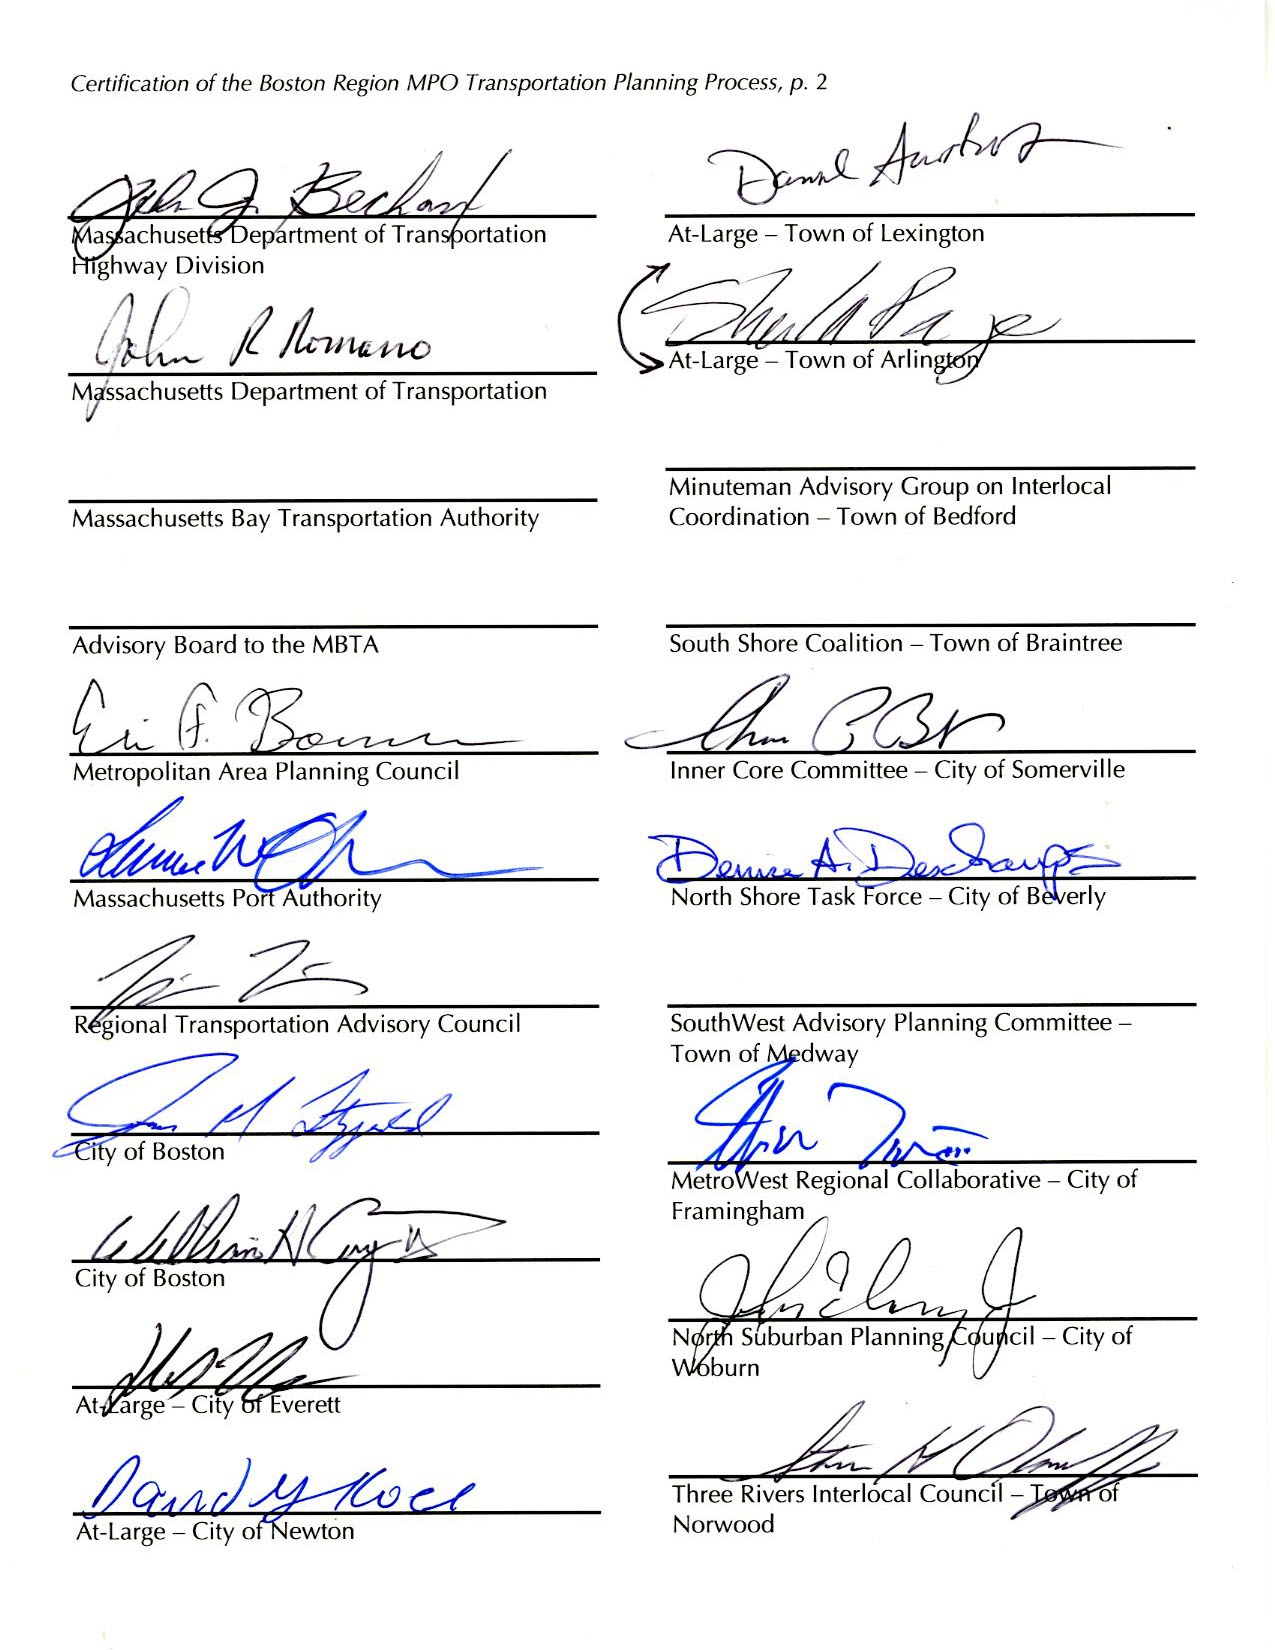 Certification of the Boston Region MPO Transportation Planning Process, p. 2
John J. Bechard
Massachusetts Department of Transportation
Highway Division
John R Romano
Massachusetts Department of Transportation
Massachusetts Bay Transportation Authority
Advisory Board to the MBTA
Eric F. Bourassa
Metropolitan Area Planning Council
Massachusetts Port Authority
Regional Transportation Advisory Council
City of Boston
William
City of Boston
At-Large – City of Everett
David Koses
At-Large – City of Newton
Daniel
At-Large – Town of Lexington
Sheila Page
At-Large – Town of Arlington
Minuteman Advisory Group on Interlocal
Coordination – Town of Bedford
South Shore Coalition – Town of Braintree
Inner Core Committee – City of Somerville
Denise A. Deschamps
North Shore Task Force – City of Beverly
SouthWest Advisory Planning Committee –
Town of Medway
MetroWest Regional Collaborative – City of
Framingham
North Suburban Planning Council – City of
Woburn
Three Rivers Interlocal Council – Town of
Norwood